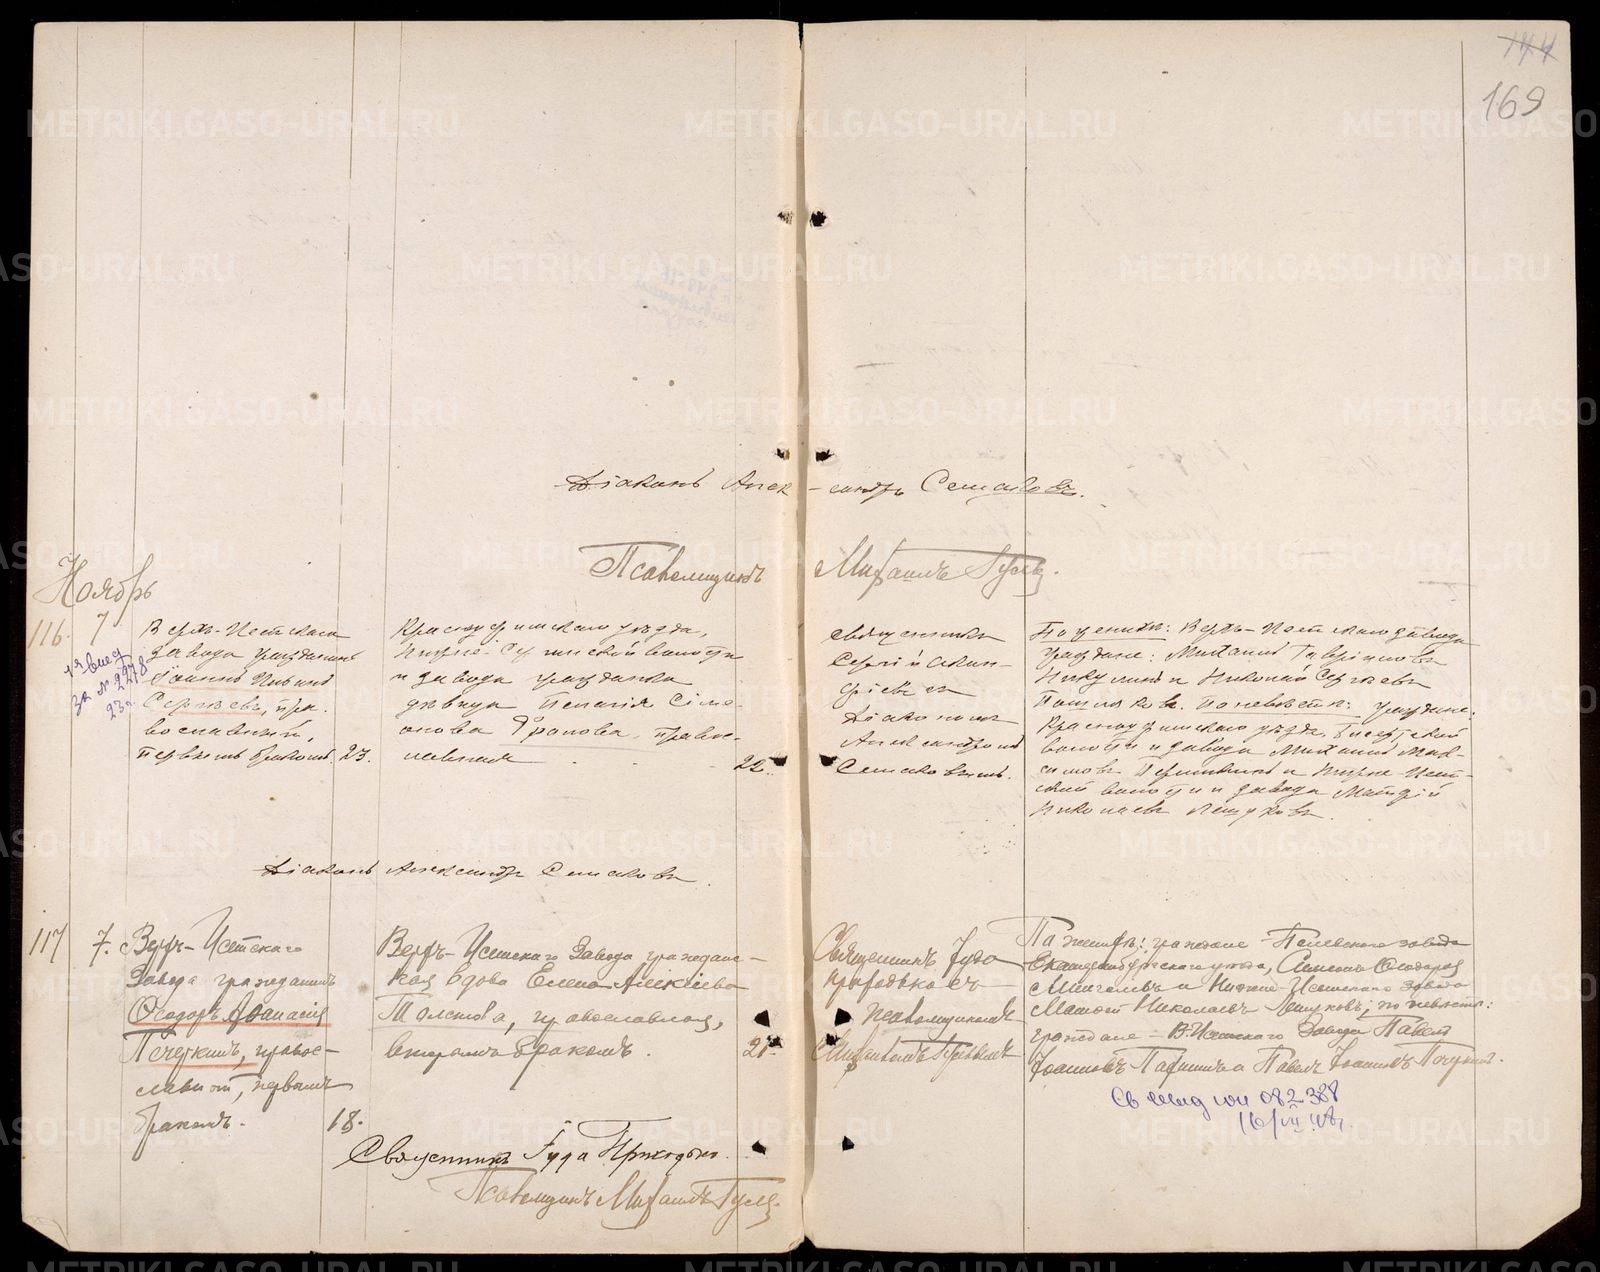 144
169
Дiаконъ Александръ Семаковъ.
Псаломщикъ Михаилъ Гусевъ.
Ноябрь
116. 7
Верхъ-Исетскаго
завода гражданинъ
Iоаннъ
Сергѣевъ, пра-
вославный,
первымъ бракомъ. 23.
за № 2278
23 г.
Красноуфимскаго уѣзда,
Нижне-Сергинской волости
и завода гражданка
дѣвица Пелагiя Симе-
онова Фролова, правос-
лавная 22.
священникъ
Сергiй
Дiакономъ
Александромъ
Семаковымъ.
По женихѣ: Верхъ-Исетскаго завода
граждане: Михаилъ Гаврiиловъ
Никулинъ и Николай Сергѣевъ
По невѣстѣ: граждане:
Красноуфимскаго уѣзда, Бисертской
волости и завода Михаилъ Мак-
симовъ и Нижне-Исет-
ской волости и завода Матфiй
Николаевъ Пешковъ.
Дiаконъ Александръ Семаковъ.
117 7.
Верхъ-Исетскаго
Завода гражданинъ
Ѳеодоръ Аѳанасiевъ
Печеркинъ, правос-
лавный, первымъ
бракомъ. 18.
Верхъ-Исетскаго Завода граждан-
ская вдова Елена Алексiева
Толстова, православная,
вторымъ бракомъ. 21.
Священникъ Iуда
Приходько съ
псаломщикомъ
Михаиломъ Гусевымъ
По женихѣ: граждане Полевского завода
Екатеринбургскаго уѣзда, Симеонъ Ѳеодоровъ
и Нижне-Исетскаго завода
Матѳей Николаевъ; по невѣстѣ:
граждане В.-Исетскаго Завода Павелъ
Iоанновъ и Павелъ Iоанновъ
082388
16/VII 48 г.
Священникъ Iуда Приходько.
Псаломщикъ Михаилъ Гусевъ.
METRIKI.GASO-URAL.RU